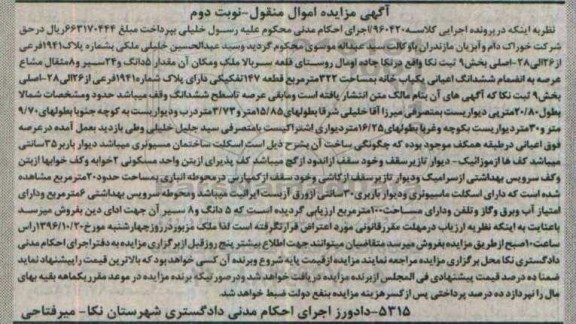 آگهی مزایده اموال منقول-نوبت دوم
نظر به اینکه در پرونده اجرایی کلاسه ۹۶۰۴۲۰/اجرای احکام مدنی محکوم علیه رسول خلیلی بپرداخت مبلغ ۶۶۳۱۷۰۴۴۴ریال در حق
شرکت خوراک دام و آبزیان مازندران با وکالت سید عبداله موسوی محکوم گردید وسید عبدالحسین خلیلی ملکی بشماره پلاک۱۹۴۱فرعی
از۲۶الی۲۸-اصلی بخش۹ ثبت نکا واقع در نکا جاده اومال روستای قلعه سر بالا ملک ومکان آن مقدار ۵دانگ و۲۴سیر و۸مثقال مشاع
عرصه به انضمام ششدانگ اعیانی یکباب خانه بمساحت ۳۲۲مترمربع قطعه ۱۴۷تفکیکی دارای پلاک شماره۱۹۴۱فرعی از۲۶الی۲۸-اصلی
بخش۹ ثبت نکا که آگهی های آن بنام مالک متن انتشار یافته است ومابقی عرصه تاسطح ششدانگ وقف میباشد حدود ومشخصات شمالا
بطول۲۰/۸۰متر پی دیواریست بمتصرفی میرزا آقا خلیلی شرقا بطولهای۱۵/۸۵متر و۳/۷۳متر درب ودیواریست به کوچه جنوبا بطولهای۹/۷۰
متر و۳۰متر دیواریست بکوچه وغربا بطولهای۱۶/۲۵متر دیواری اشتراکیست بامتصرفی سید جلیل خلیلی وطی بازدید بعمل آمده در عرصه
فوق اعیانی در طبقه همکف موجود بوده که چگونگی ساخت آن بشرح ذیل است اسکلت ساختمان مسیوتری میباشد دیوار باربر ۳۵سانتی
میباشد کف ها از موزائیک- دیوار تاز یرسقف وخود سقف ازاندود از گچ میباشد کف پذیرای از یتن واحد مسکونی ۲خوابه وکف خوابها از یتن
وکف سرویس بهداشتی از سرامیک ودیوار تازیرسقف از کاشی وخود سقف از کمپارتی در محوطه انباری بمساحت حدود۲۰مترمربع مشاهده
شده است که دارای اسکلت ماسیوتری ودیوار باربری۳۰سانتی از ورق آزبست ایرانیت میباشد ومحوطه سرویس بهداشتی ۶مترمربع ودارای
امتیاز آب وبرق وگاز وتلفن ودارای مساحت۱۰۰مترمربع ارزیابی گردیده است که ۵ دانگ و۸ سیر آن جهت ادای دین بفروش میرسد
باعنایت به اینکه نظریه ارزیاب در مهلت مقرر قانونی مورد اعتراض قرار نگرفته است لذا ملک مزبور در روز چهارشنبه مورخ ۱۳۹۶/۱۰/۲۰راس
ساعت۱۰صبح از طریق مزایده بفروش میرسد متقاضیان میتوانند جهت اطلاع بیشتر پنج روز قبل از برگزاری مزایده به دفتر اجرای احکام مدنی
دادگستری نکا محل برگزاری مزایده مراجعه نمایند مزایده از قیمت پایه شروع وبرنده آن کسی خواهد بود که بالاترین قیمت را پیشنهاد نماید
ضمنا ده درصد قیمت پیشنهادی فی المجلس از برنده مزایده دریافت خواهد شد ودر صورتیکه برنده مزایده در موعد مقرر یکماهه بقیه بهای
مال را نپردازد ده درصد پرداختی پس از کسر هزینه مزایده بنفع دولت ضبط خواهد شد.
۵۳۱۵-دادورز اجرای احکام مدنی دادگستری شهرستان نکا- میرفتاحی